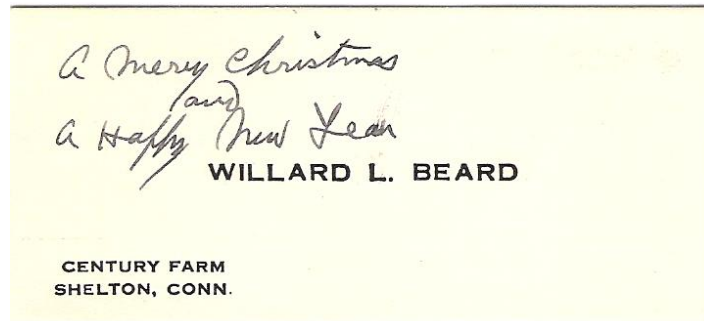 A Merry Christmas
and
A Happy New Year
WILLARD L. BEARD
CENTURY FARM
SHELTON, CONN.